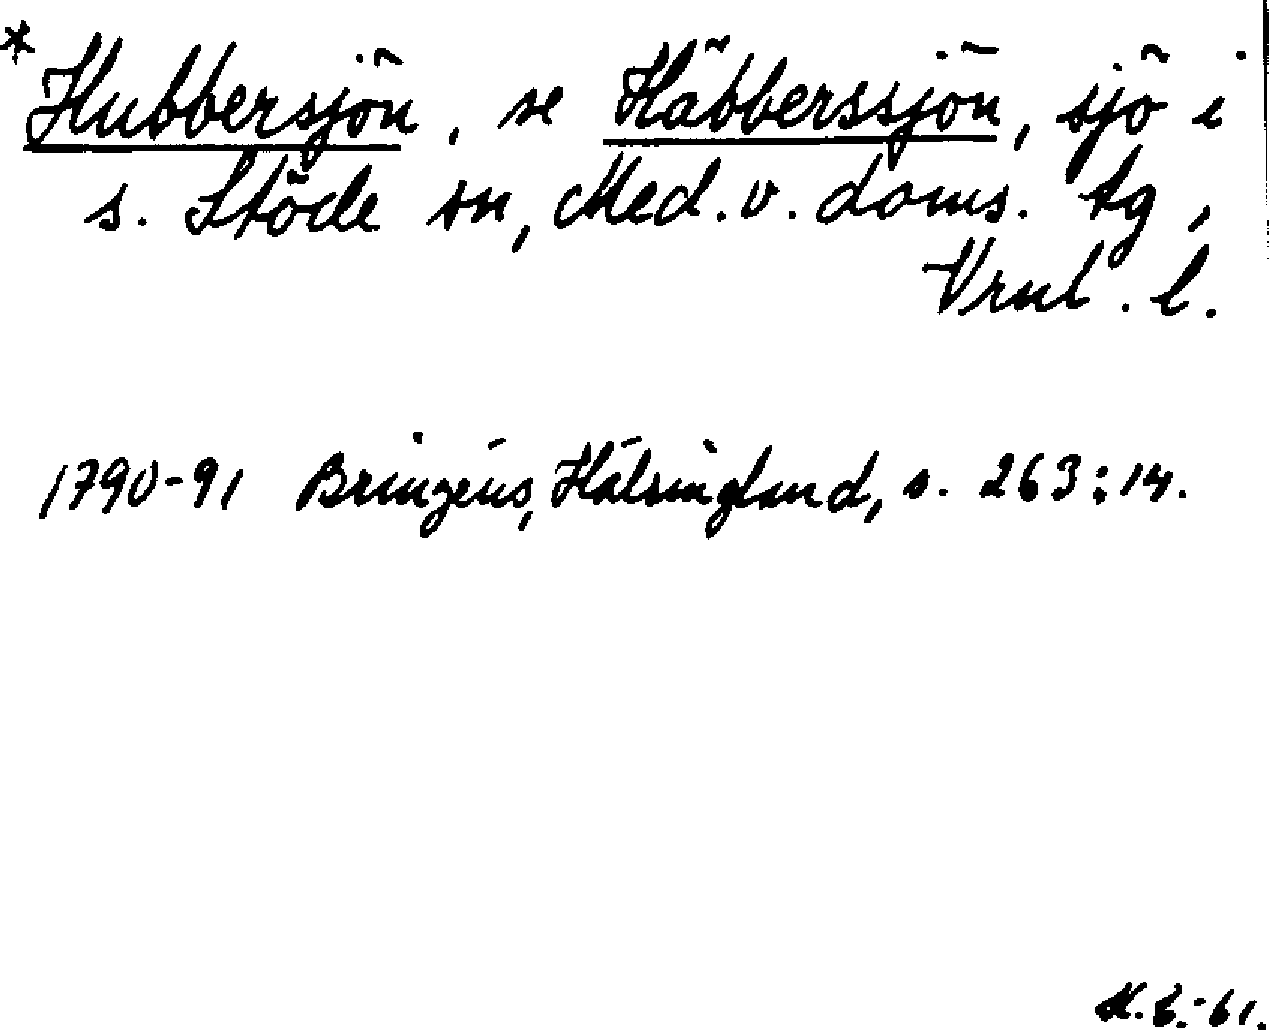 * Hubbersjön, se Häbberssjön, sjö i
s. Stöde sn, Med. v. doms. tg,
Vrnl. l.
1790-91 Bringéus, Hälsingland, s. 263:14.
-61.